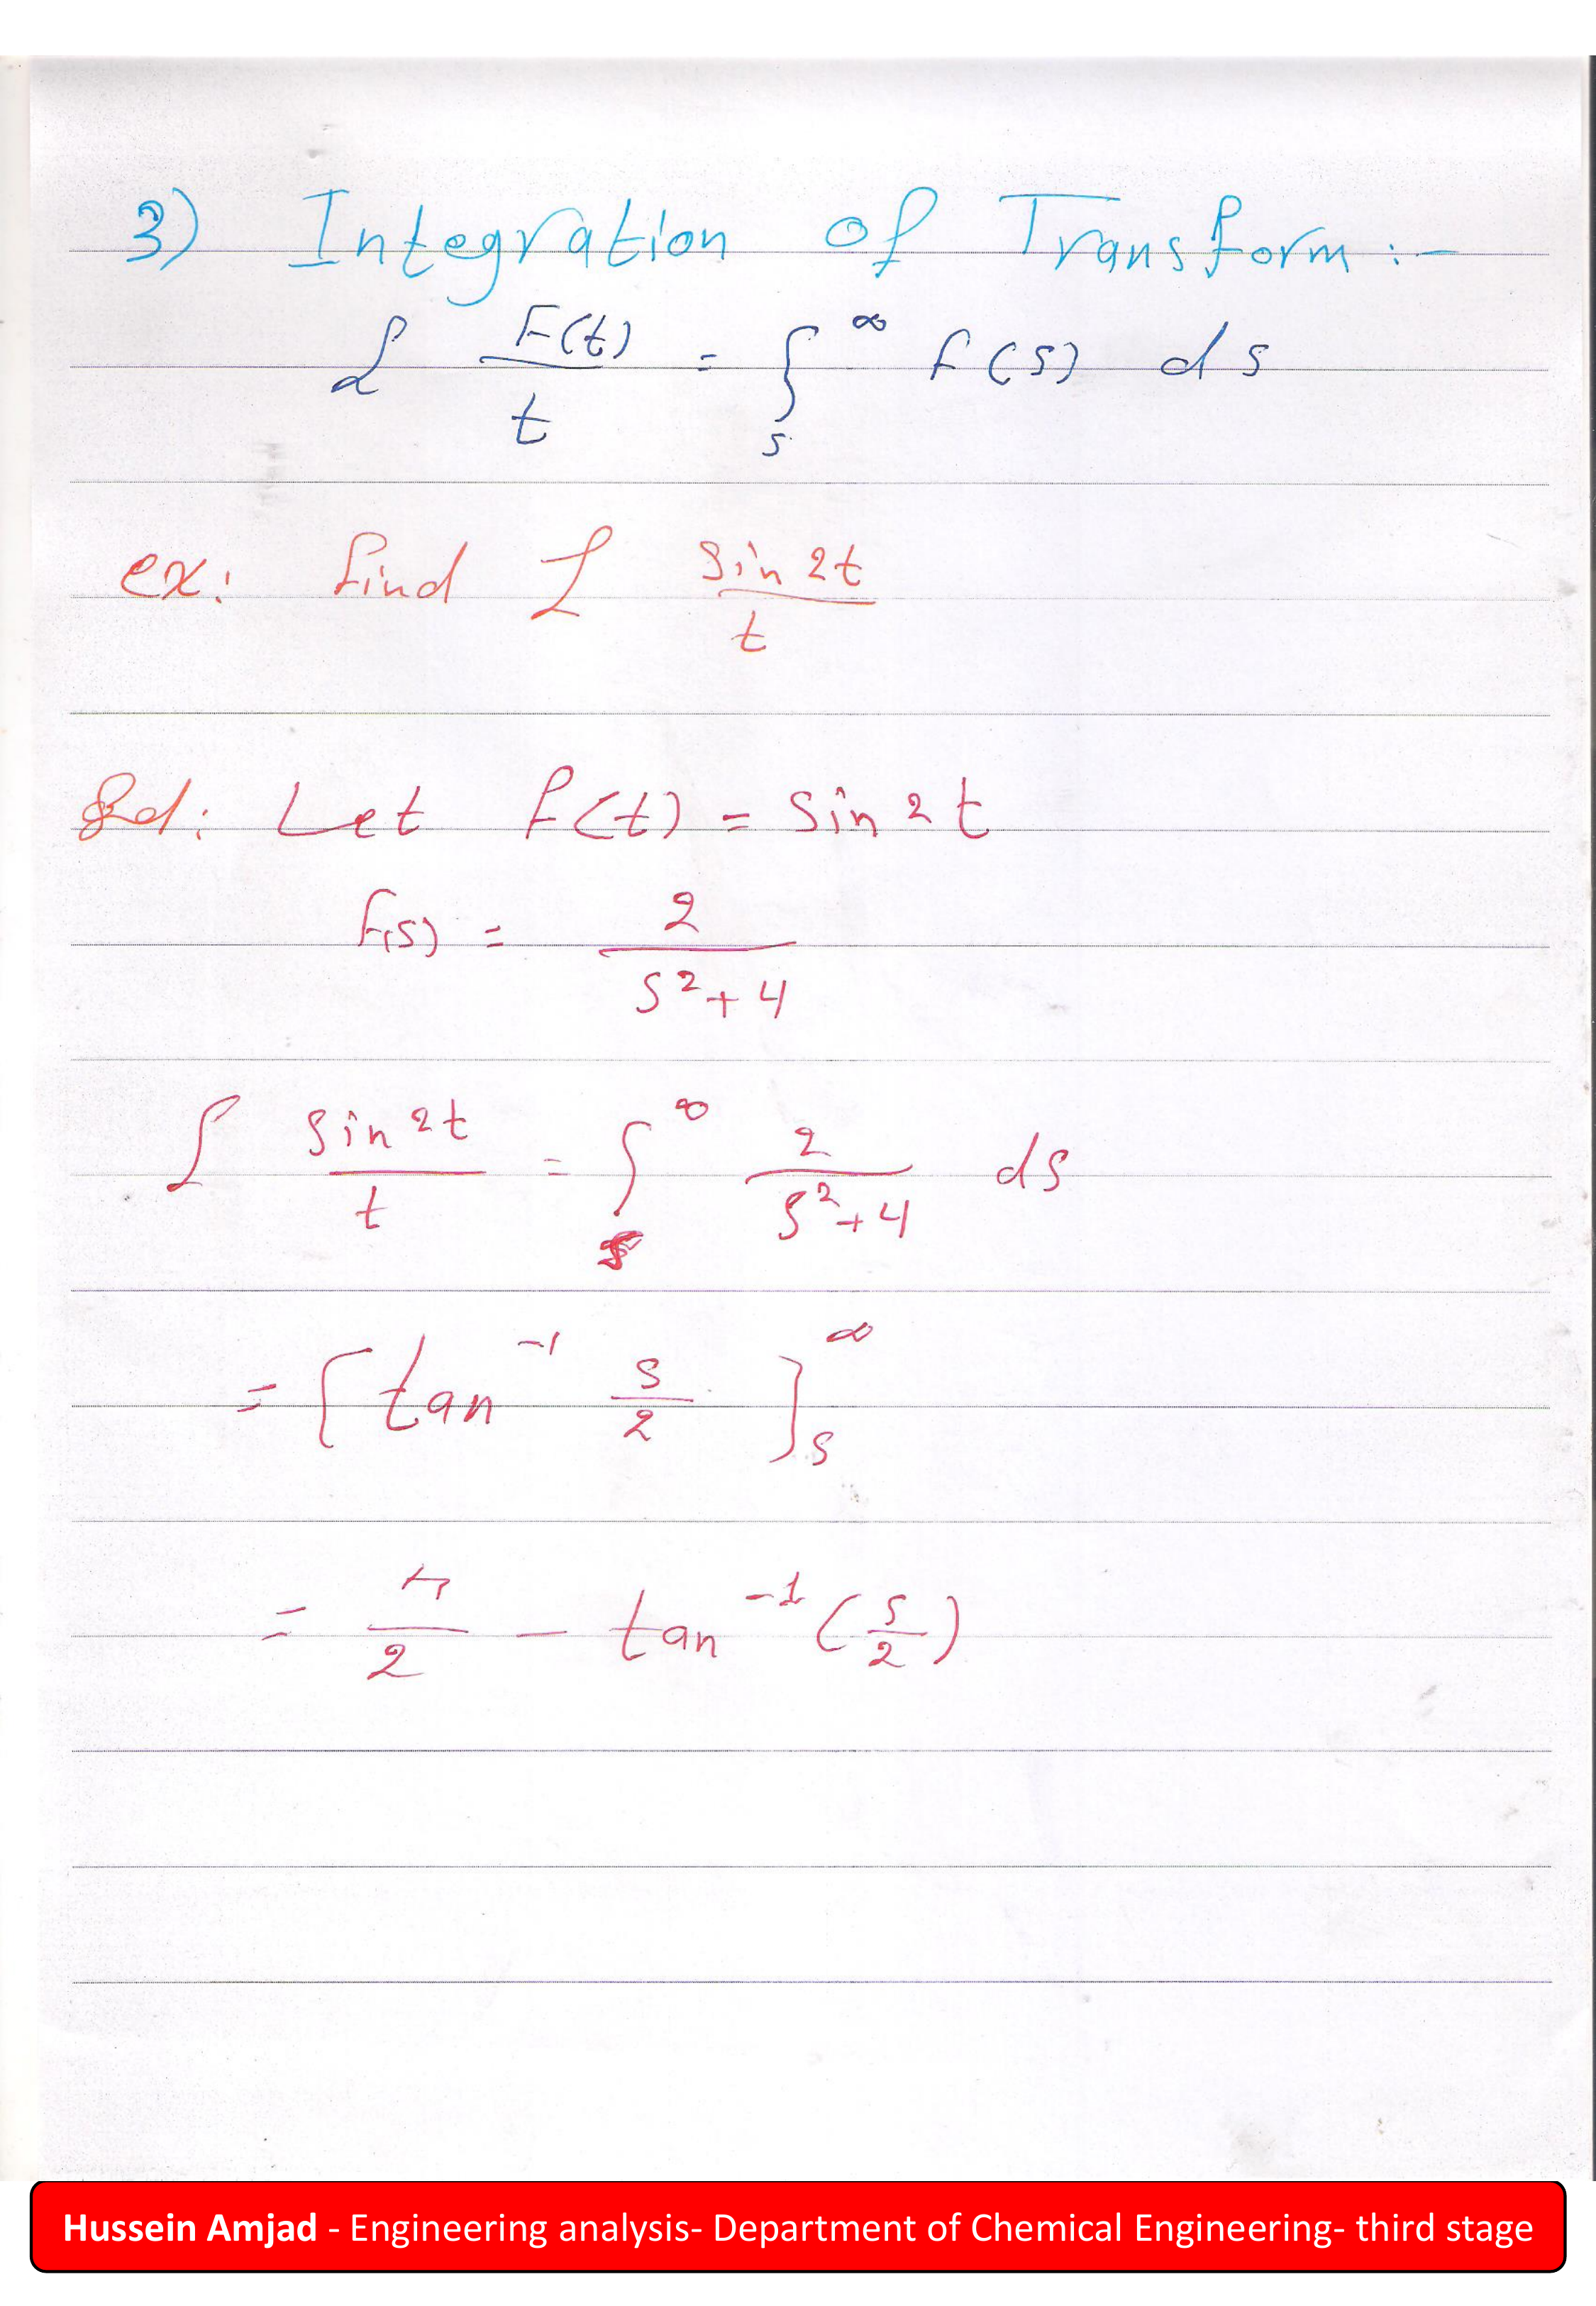 3) Integration of Transform :-
ℒ F(t)/t = ∫_s^∞ f(s) ds
ex: find ℒ sin 2t/t
Sol: Let f(t) = sin 2t
f(s) = 2/(s²+4)
ℒ sin 2t/t = ∫_s^∞ 2/(s²+4) ds
= [tan⁻¹ s/2]_s^∞
= π/2 - tan⁻¹(s/2)
Hussein Amjad - Engineering analysis- Department of Chemical Engineering- third stage